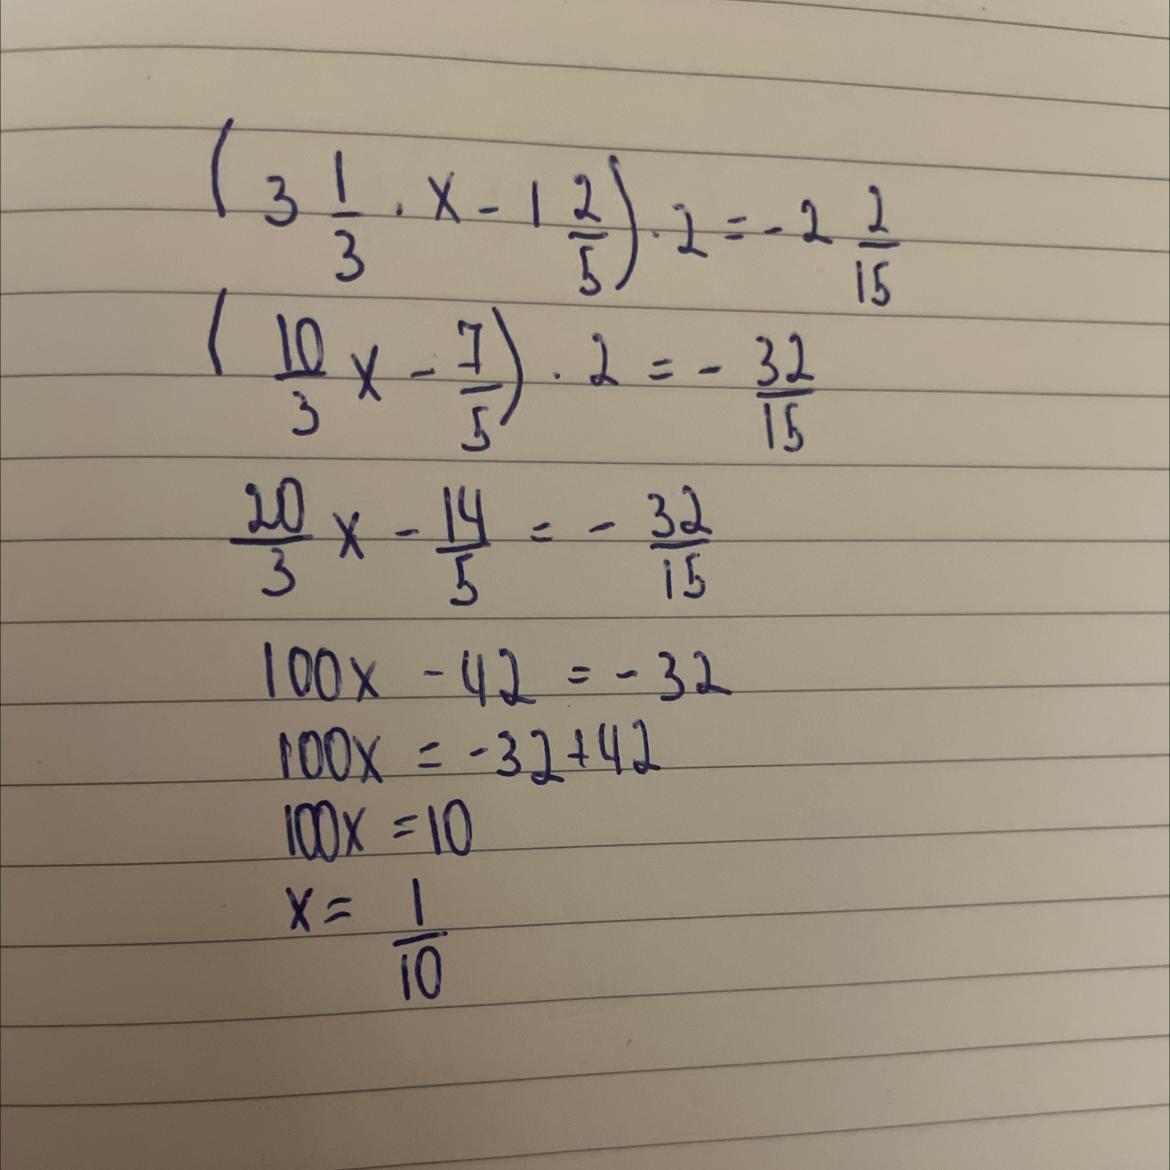 (3 1/3 · x - 1 2/5) · 2 = - 2 2/15
(10/3 x - 7/5) · 2 = - 32/15
20/3 x - 14/5 = - 32/15
100x - 42 = - 32
100x = -32+42
100x = 10
x = 1/10